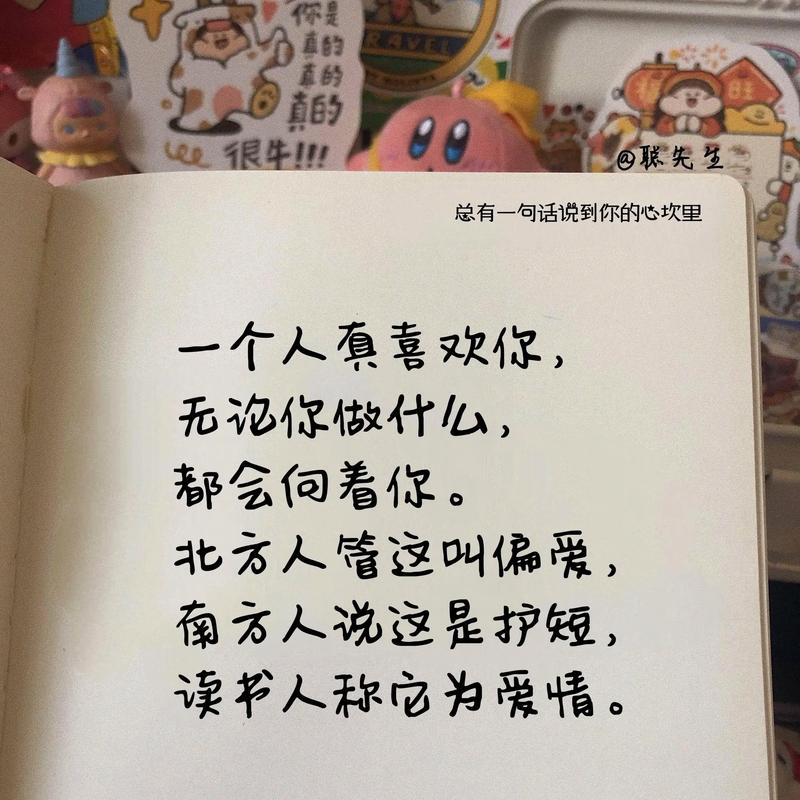 你是
真的
真的
真的
很牛!!!
RAVEL
福 旺
@聪先生
总有一句话说到你的心坎里
一个人真喜欢你，
无论你做什么，
都会向着你。
北方人管这叫偏爱，
南方人说这是护短，
读书人称它为爱情。